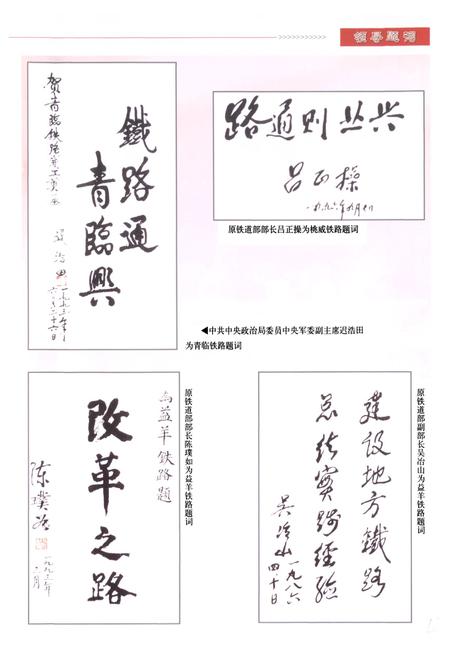 领导题词
鐵路通
青臨興
贺青临铁路竣工通车
迟浩田
一九九三年
六月二十六日
路通则业兴
吕正操
一九九六年九月
原铁道部部长吕正操为桃威铁路题词
◀中共中央政治局委员中央军委副主席迟浩田
为青临铁路题词
为益羊铁路题
改革之路
陈璞如
一九九三年
原铁道部部长陈璞如为益羊铁路题词
建设地方鐵路
总结实践经验
吴冶山一九八六
四·十日
原铁道部副部长吴冶山为益羊铁路题词